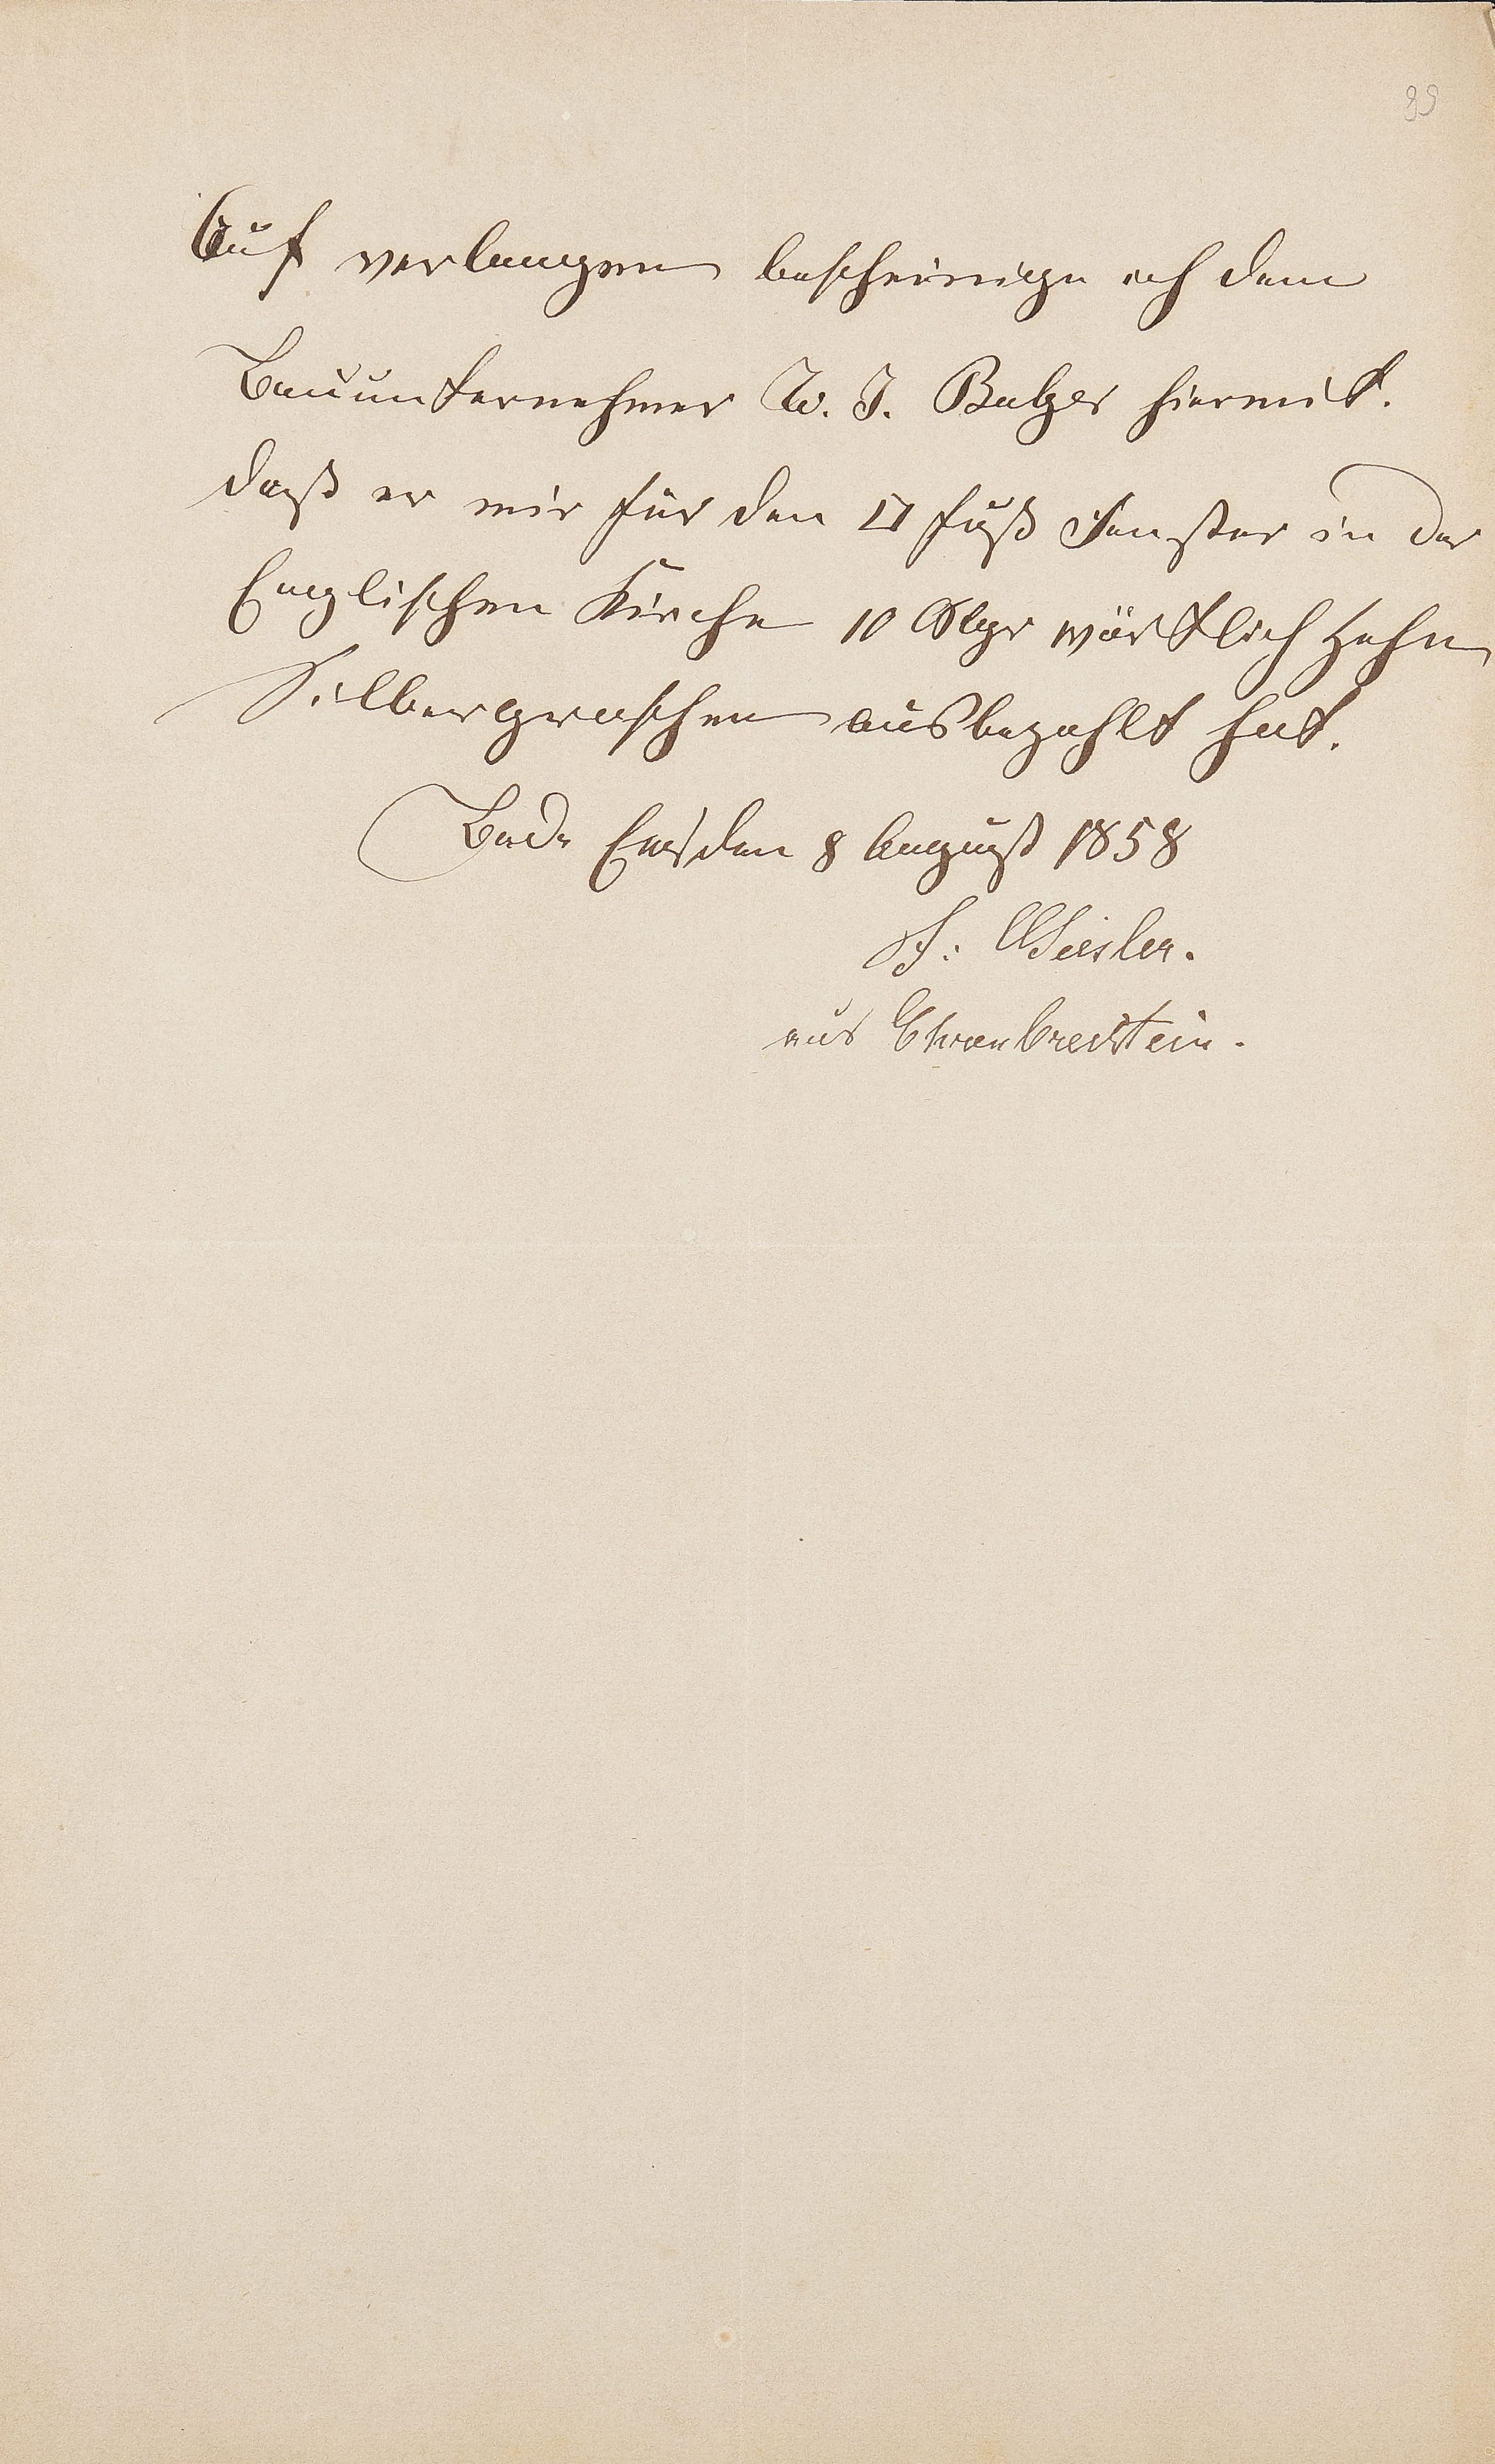 89
Auf verlangen bescheinige ich dem
Bauunternehmer W. J. Balzer hiermit.
daß er mir für den □ Fuß Fenster in der
Englischen Kirche 10 Slgr wörtlich Zehn
Silbergroschen ausbezahlt hat.
Bad Ems den 8 August 1858
aus Ehrenbreitstein.